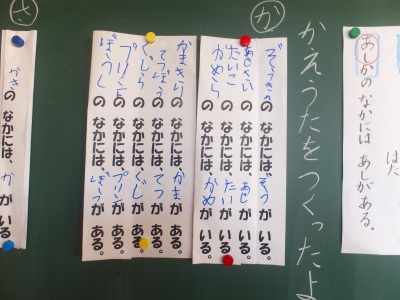 あしかの なかには あしが ある。
はた
かえうたをつくったよ
か
ぞうきんの なかには、ぞうが いる。
あじさいの なかには、あじが いる。
たいこの なかには、たいが いる。
かめらの なかには、かめが いる。
かまきりの なかには、かまが ある。
てつぼうの なかには、てつが ある。
くじらの なかには、くじが ある。
プリントの なかには、プリンが ある。
ぼうしの なかには、ぼうが ある。
さ
かさの なかには、かが いる。